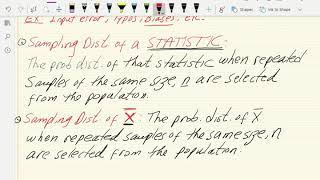 Ex: Input error, Typos, Biases, Etc.
② Sampling Dist. of a STATISTIC:
The prob. dist. of that statistic when repeated
Samples of the same size, n are selected
from the population.
③ Sampling Dist. of X̄: The prob. dist. of x̄
when repeated samples of the same size, n
are selected from the population.